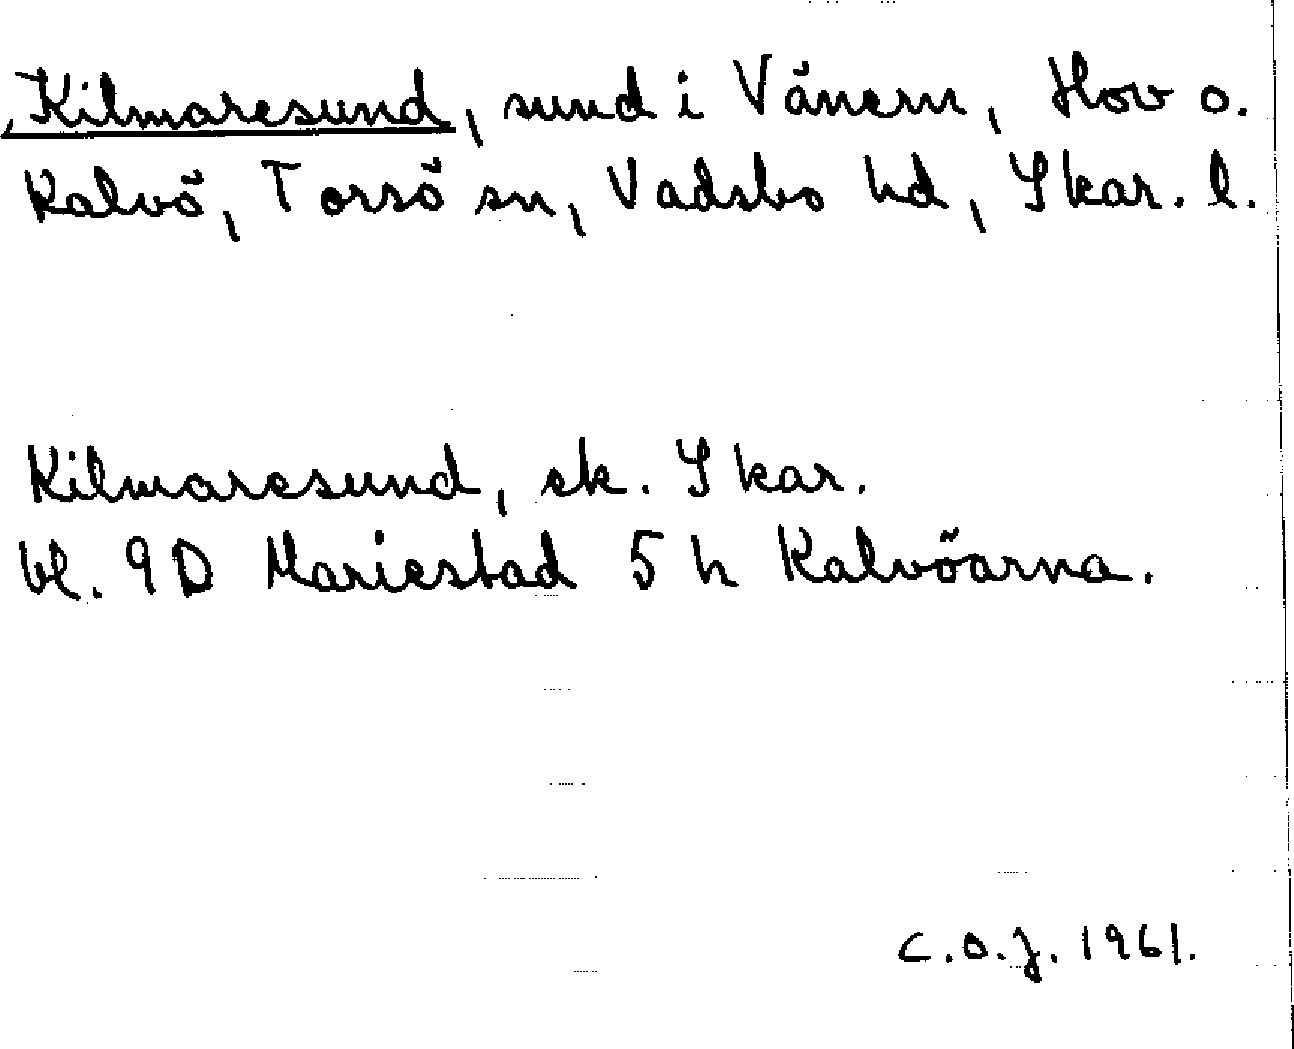 Kilmaresund, sund i Vänern, Hov o.
Kalvö, Torsö sn, Vadsbo hd, Skar. l.
Kilmaresund, ek. Skar.
bl. 9D Mariestad 5h Kalvöarna.
C.O.J. 1961.